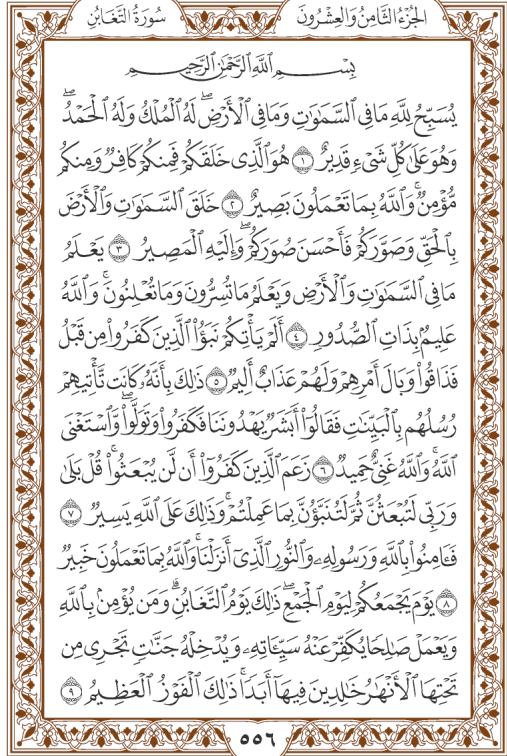 الجُزْءُ الثَّامِنُ وَالعِشْرُونَ
سُورَةُ التَّغَابُنِ
بِسْمِ اللَّهِ الرَّحْمَٰنِ الرَّحِيمِ
يُسَبِّحُ لِلَّهِ مَا فِي السَّمَٰوَٰتِ وَمَا فِي الْأَرْضِۖ لَهُ الْمُلْكُ وَلَهُ الْحَمْدُۖ
وَهُوَ عَلَىٰ كُلِّ شَيْءٍ قَدِيرٌ ١ هُوَ الَّذِي خَلَقَكُمْ فَمِنكُمْ كَافِرٌ وَمِنكُم
مُّؤْمِنٌۚ وَاللَّهُ بِمَا تَعْمَلُونَ بَصِيرٌ ٢ خَلَقَ السَّمَٰوَٰتِ وَالْأَرْضَ
بِالْحَقِّ وَصَوَّرَكُمْ فَأَحْسَنَ صُوَرَكُمْۖ وَإِلَيْهِ الْمَصِيرُ ٣ يَعْلَمُ
مَا فِي السَّمَٰوَٰتِ وَالْأَرْضِ وَيَعْلَمُ مَا تُسِرُّونَ وَمَا تُعْلِنُونَۚ وَاللَّهُ
عَلِيمٌۢ بِذَاتِ الصُّدُورِ ٤ أَلَمْ يَأْتِكُمْ نَبَؤُا۟ الَّذِينَ كَفَرُوا۟ مِن قَبْلُ
فَذَاقُوا۟ وَبَالَ أَمْرِهِمْ وَلَهُمْ عَذَابٌ أَلِيمٌ ٥ ذَٰلِكَ بِأَنَّهُۥ كَانَت تَّأْتِيهِمْ
رُسُلُهُم بِالْبَيِّنَٰتِ فَقَالُوٓا۟ أَبَشَرٌ يَهْدُونَنَا فَكَفَرُوا۟ وَتَوَلَّوا۟ۖ وَّاسْتَغْنَى
اللَّهُۚ وَاللَّهُ غَنِيٌّ حَمِيدٌ ٦ زَعَمَ الَّذِينَ كَفَرُوٓا۟ أَن لَّن يُبْعَثُوا۟ۚ قُلْ بَلَىٰ
وَرَبِّي لَتُبْعَثُنَّ ثُمَّ لَتُنَبَّؤُنَّ بِمَا عَمِلْتُمْۚ وَذَٰلِكَ عَلَى اللَّهِ يَسِيرٌ ٧
فَـَٔامِنُوا۟ بِاللَّهِ وَرَسُولِهِۦ وَالنُّورِ الَّذِيٓ أَنزَلْنَاۚ وَاللَّهُ بِمَا تَعْمَلُونَ خَبِيرٌ
٨ يَوْمَ يَجْمَعُكُمْ لِيَوْمِ الْجَمْعِۖ ذَٰلِكَ يَوْمُ التَّغَابُنِۗ وَمَن يُؤْمِنۢ بِاللَّهِ
وَيَعْمَلْ صَٰلِحًا يُكَفِّرْ عَنْهُ سَيِّـَٔاتِهِۦ وَيُدْخِلْهُ جَنَّٰتٍ تَجْرِي مِن
تَحْتِهَا الْأَنْهَٰرُ خَٰلِدِينَ فِيهَآ أَبَدًاۚ ذَٰلِكَ الْفَوْزُ الْعَظِيمُ ٩
٥٥٦